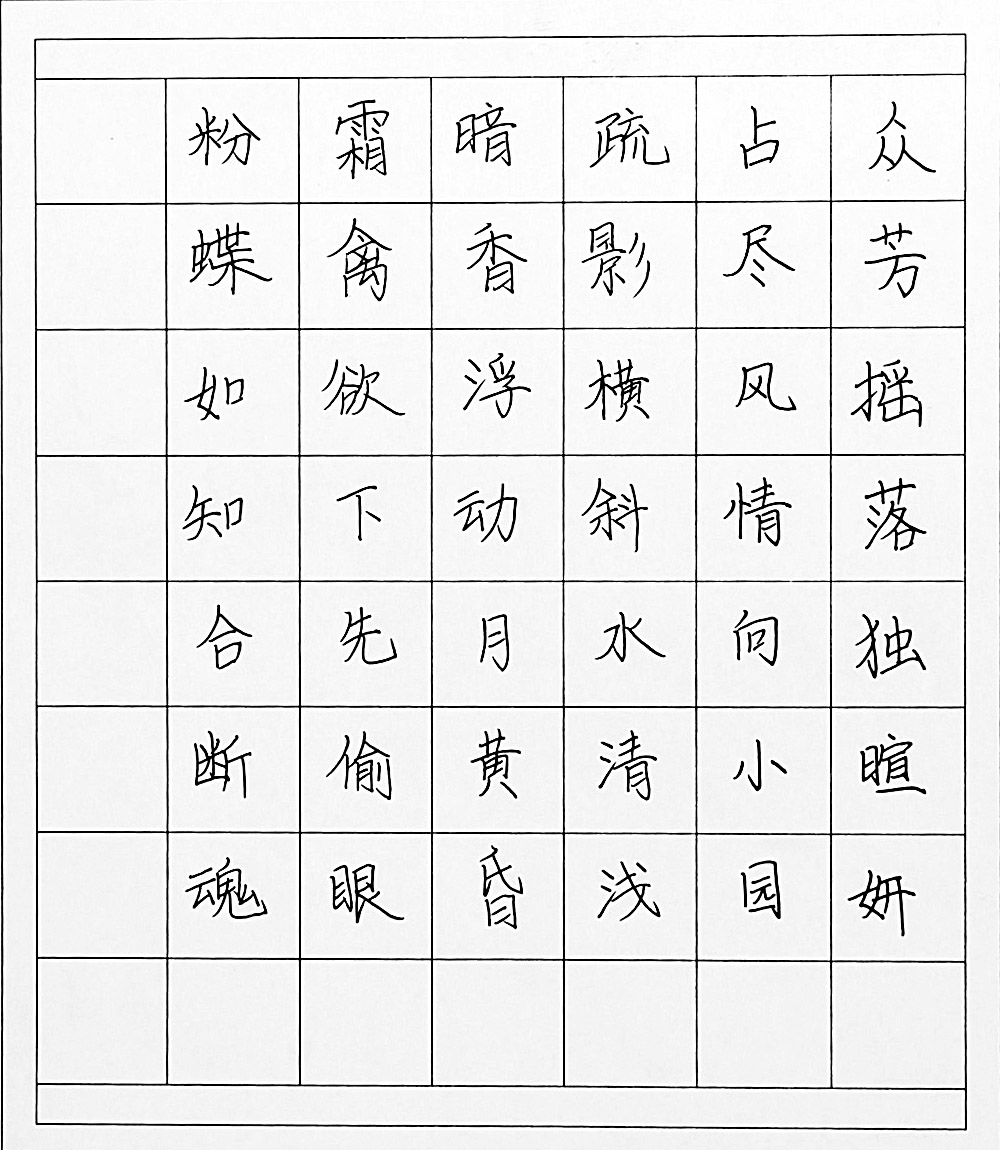 众芳摇落独暄妍
占尽风情向小园
疏影横斜水清浅
暗香浮动月黄昏
霜禽欲下先偷眼
粉蝶如知合断魂